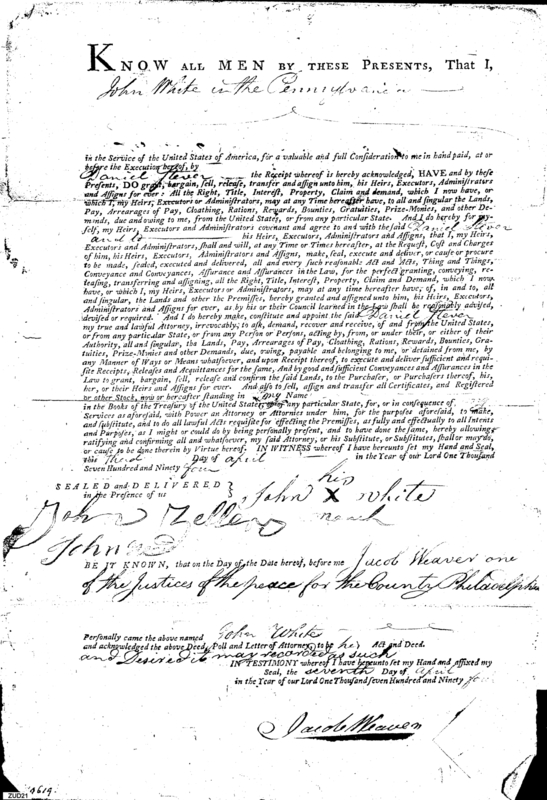 KNOW ALL MEN BY THESE PRESENTS, That I,
John White in the Pennsylvania
in the Service of the United States of America, for a valuable and full Consideration to me in hand paid, at or
before the Execution hereof, by
Daniel Stever the Receipt whereof is hereby acknowledged, HAVE and by these
Presents, DO grant, bargain, sell, release, transfer and assign unto him, his Heirs, Executors, Administrators
and Assigns for ever: All the Right, Title, Interest, Property, Claim and demand, which I now have, or
which I, my Heirs, Executors or Administrators, may at any Time hereafter have, to all and singular the Lands,
Pay, Arrearages of Pay, Cloathing, Rations, Rewards, Bounties, Gratuities, Prize-Monies, and other De-
mands, due and owing to me, from the United States, or from any particular State: And I do hereby for my-
self, my Heirs, Executors and Administrators covenant and agree to and with the said Daniel Stever
and to his Heirs, Executors, Administrators and Assigns, that I, my Heirs,
Executors and Administrators, shall and will, at any Time or Times hereafter, at the Request, Cost and Charges
of him, his Heirs, Executors, Administrators and Assigns, make, seal, execute and deliver, or cause or procure
to be made, sealed, executed and delivered, all and every such reasonable Act and Acts, Thing and Things,
Conveyance and Conveyances, Assurance and Assurances in the Law, for the perfect granting, conveying, re-
leasing, transferring and assigning, all the Right, Title, Interest, Property, Claim and Demand, which I now
have, or which I, my Heirs, Executors or Administrators, may at any time hereafter have; of, in and to, all
and singular, the Lands and other the Premisses, hereby granted and assigned unto him, his Heirs, Executors,
Administrators and Assigns for ever, as by his or their Council learned in the Law shall be reasonably advised,
devised or required. And I do hereby make, constitute and appoint the said Daniel Stever
my true and lawful Attorney, irrevocably; to ask, demand, recover and receive, of and from the United States,
or from any particular State, or from any Person or Persons, acting by, from, or under their, or either of their
Authority, all and singular, the Lands, Pay, Arrearages of Pay, Cloathing, Rations, Rewards, Bounties, Gra-
tuities, Prize-Monies and other Demands, due, owing, payable and belonging to me, or detained from me, by
any Manner of Ways or Means whatsoever, and upon Receipt thereof, to execute and deliver sufficient and requi-
site Receipts, Releases and Acquittances for the same, And by good and sufficient Conveyances and Assurances in the
Law to grant, bargain, sell, release and confirm the said Lands, to the Purchaser or Purchasers thereof, his,
her, or their Heirs and Assigns for ever. And also to sell, assign and transfer all Certificates, and Registered
or other Stock, now or hereafter standing in my Name
in the Books of the Treasury of the United States, or any particular State, for, or in consequence of my
Services as aforesaid, with Power an Attorney or Attornies under him, for the purposes aforesaid, to make,
and substitute, and to do all lawful Acts requisite for effecting the Premisses, as fully and effectually to all Intents
and Purposes, as I might or could do by being personally present, and to have done the same, hereby allowing,
ratifying and confirming all and whatsoever, my said Attorney, or his Substitute, or Substitutes, shall or may do,
or cause to be done therein by Virtue hereof. IN WITNESS whereof I have hereunto set my Hand and Seal,
this third Day of april in the Year of our Lord One Thousand
Seven Hundred and Ninety four
SEALED and DELIVERED
in the Presence of us
his
John X White
mark
John Zeller
John
BE IT KNOWN, that on the Day of the Date hereof, before me Jacob Weaver one
of the Justices of the peace for the County Philadelphia
Personally came the above named John White
and acknowledged the above Deed, Poll and Letter of Attorney, to be his Act and Deed.
and Desired it may recorded as such
IN TESTIMONY whereof I have hereunto set my Hand and affixed my
Seal, the seventh Day of april
in the Year of our Lord One Thousand seven Hundred and Ninety four
Jacob Weaver
ZUD21